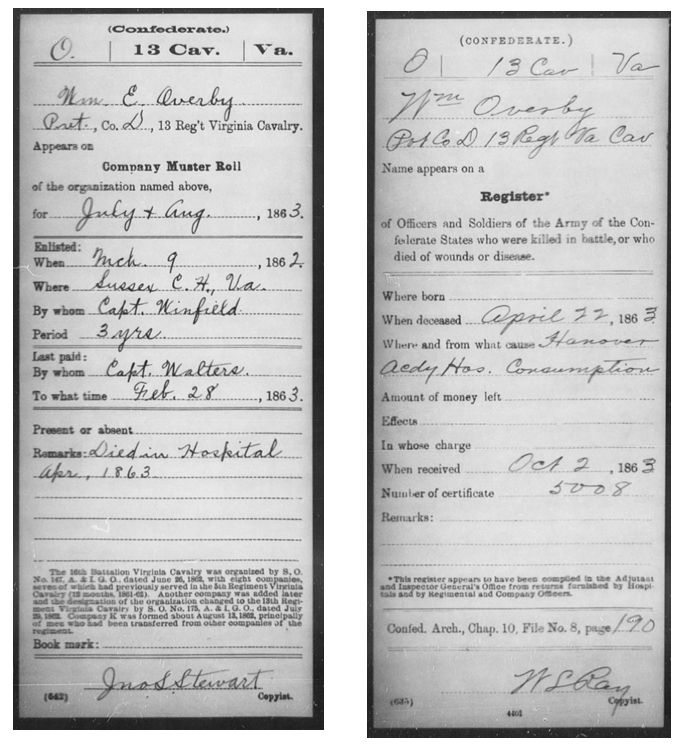 (Confederate.)
O. | 13 Cav. | Va.
Wm. E. Overby
Pvt., Co. D, 13 Reg't Virginia Cavalry.
Appears on
Company Muster Roll
of the organization named above,
for July + Aug., 1863.
Enlisted:
When Mch. 9, 1862.
Where Sussex C. H., Va.
By whom Capt. Winfield.
Period 3 yrs.
Last paid:
By whom Capt. Walters.
To what time Feb. 28, 1863.
Present or absent
Remarks: Died in Hospital
Apr, 1863
The 16th Battalion Virginia Cavalry was organized by S. O.
No. 147, A. & I. G. O., dated June 26, 1862, with eight companies,
seven of which had previously served in the 5th Regiment Virginia
Cavalry (12 months, 1861-62). Another company was added later
and the designation of the organization changed to the 13th Regi-
ment Virginia Cavalry by S. O. No. 175, A. & I. G. O., dated July
29, 1862. Company K was formed about August 13, 1862, principally
of men who had been transferred from other companies of the
regiment.
Book mark:
Jno S Stewart
(642) Copyist.
(CONFEDERATE.)
O | 13 Cav | Va
Wm Overby
Pvt Co D 13 Regt Va Cav
Name appears on a
Register*
of Officers and Soldiers of the Army of the Con-
federate States who were killed in battle, or who
died of wounds or disease.
Where born
When deceased April 22, 1863
Where and from what cause Hanover
Acdy Hos. Consumption
Amount of money left
Effects
In whose charge
When received Oct 2, 1863
Number of certificate 5008
Remarks:
*This register appears to have been compiled in the Adjutant
and Inspector General's Office from returns furnished by Hospi-
tals and by Regimental and Company Officers.
Confed. Arch., Chap. 10, File No. 8, page 190
W S Ray
(635) Copyist.